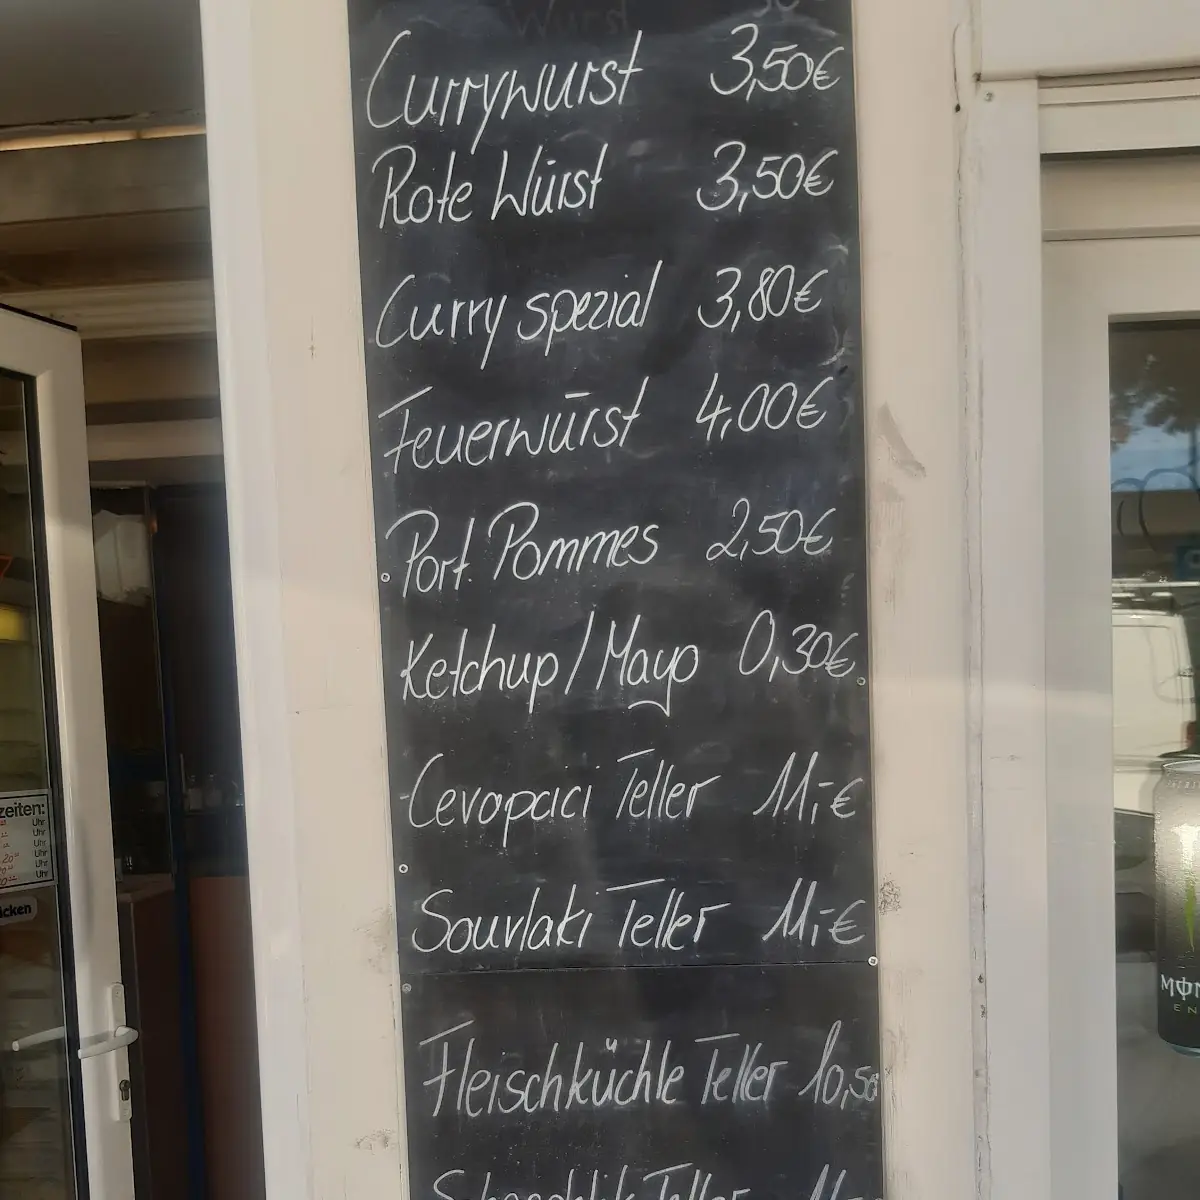 Wurst
Currywurst 3,50€
Rote Wurst 3,50€
Curry spezial 3,80€
Feuerwurst 4,00€
Port. Pommes 2,50€
Ketchup/Mayo 0,30€
Cevapcici Teller 11,-€
Souvlaki Teller 11,-€
Fleischküchle Teller 10,50
Teller 11,-
zeiten:
Uhr
Uhr
Uhr
Uhr
Uhr
Uhr
icken
MON
EN